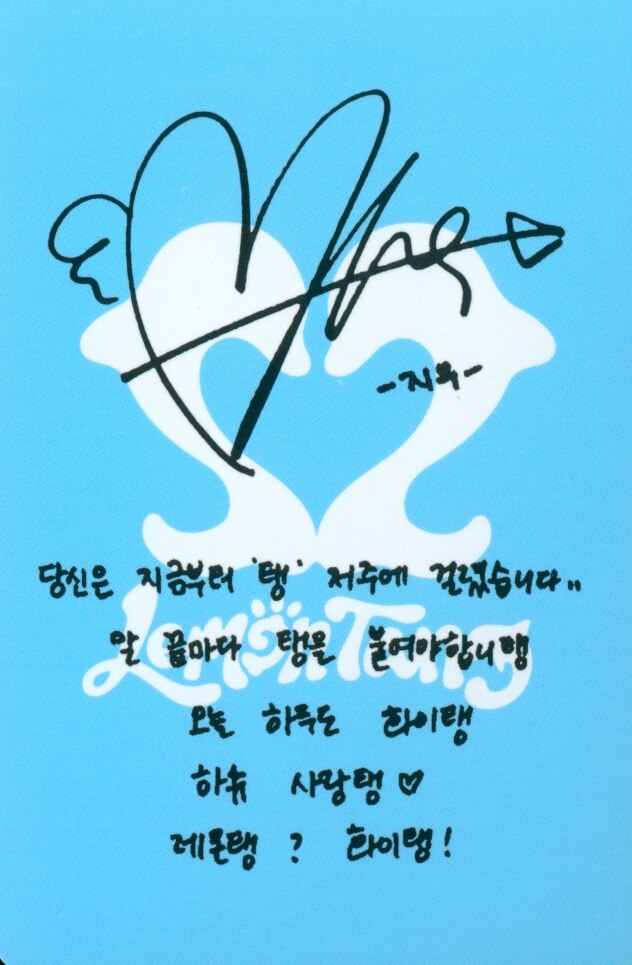 -지우-
당신은 지금부터 '탱' 저주에 걸렸습니다..
말 끝마다 탱을 붙여야합니탱
Lemon Tang
오늘 하루도 화이탱
하츄 사랑탱♡
레몬탱? 화이탱!